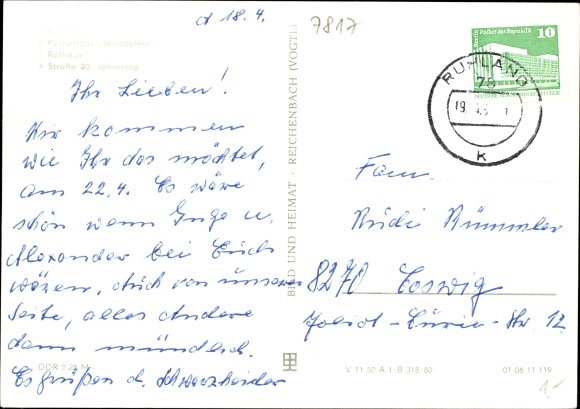 d 18.4.
7817
Kulturhaus „Wandelhof"
Rathaus
Straße 20. Jahrestag
Ihr Lieben!
Wir kommen
wie Ihr das möchtet,
am 22.4. Es wäre
schön wenn Inge u.
Alexander bei Euch
wären. Auch von unserer
Seite, alles Andere
dann mündlich.
Es grüßen d. Schwarzheider
DDR 0,25 M
BILD UND HEIMAT · REICHENBACH (VOGTL)
Palast der Republik
10
RUHLAND
78
19.
K
Fam.
Rudi Kümmler
8270 Coswig
Joliot-Curie-Str. 12
V 11 50 A 1/B 318/80
01 06 11 119
1,-